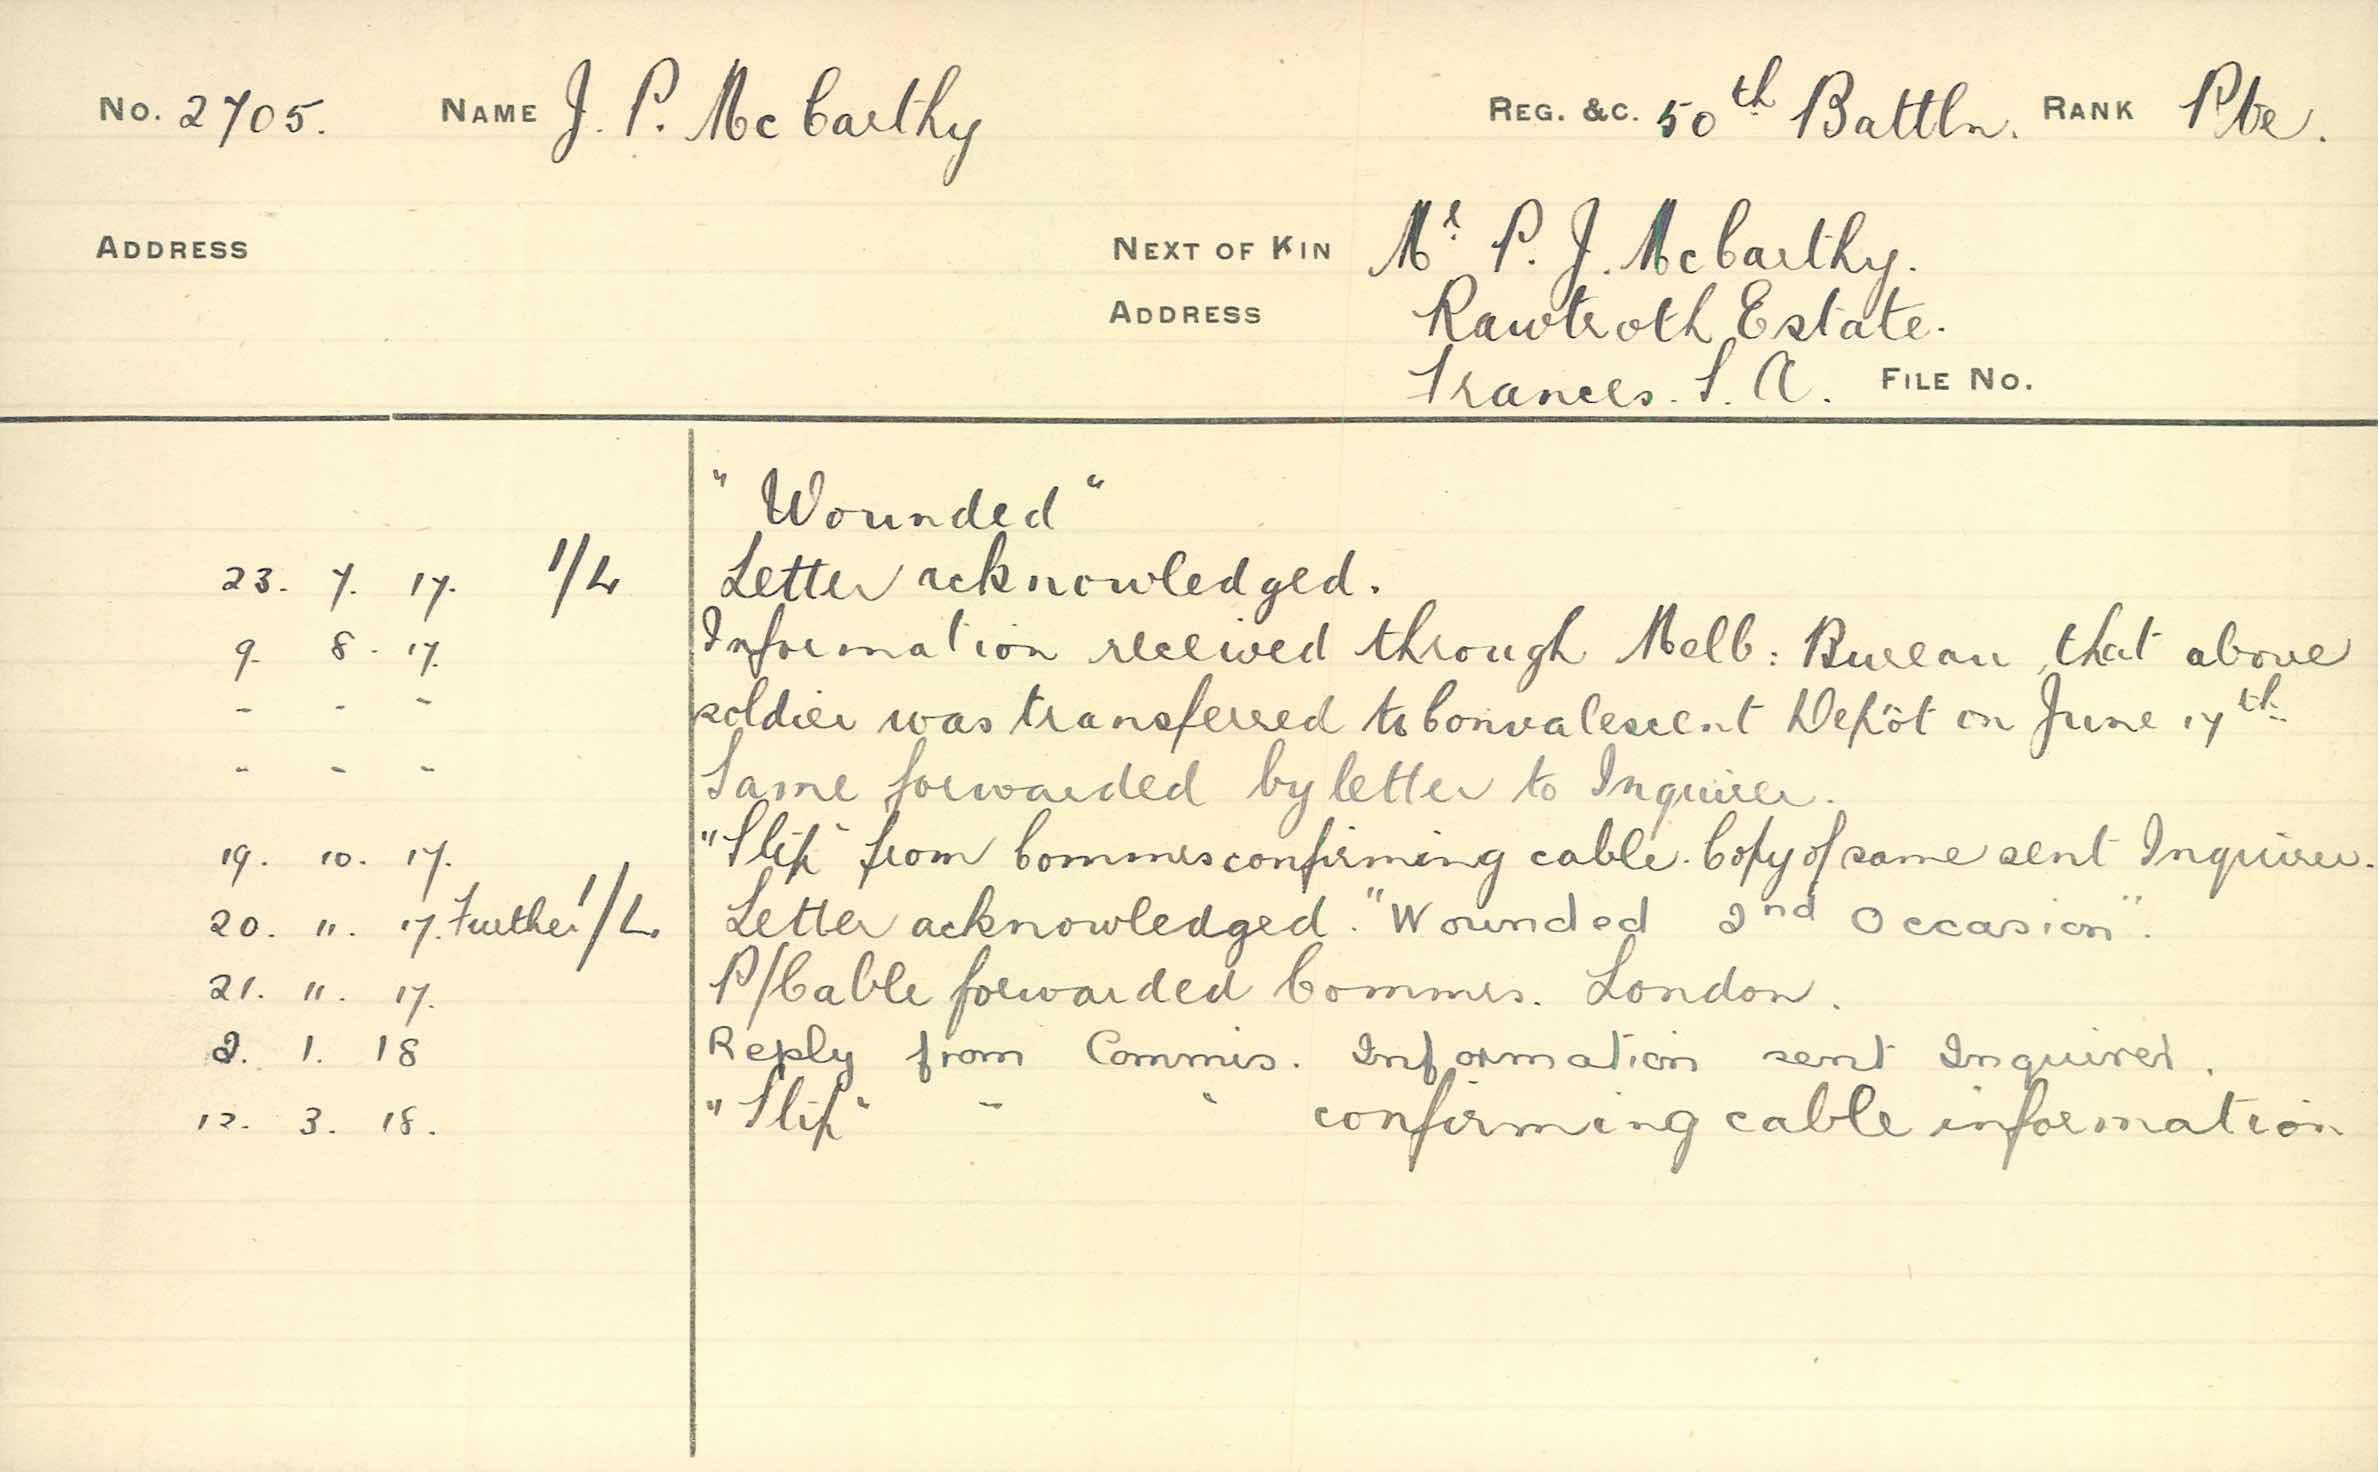 No. 2705. NAME J. P. McCarthy REG. &C. 50th Battln. RANK Pte.
ADDRESS NEXT OF KIN Mr. P. J. McCarthy.
ADDRESS Rawtroth Estate.
Frances. S. A. FILE No.
"Wounded"
23. 7. 17. 1/L Letter acknowledged.
9. 8. 17. Information received through Melb: Bureau, that above
" " " soldier was transferred to Convalescent Depôt on June 17th.
" " " Same forwarded by letter to Inquirer.
19. 10. 17. "Slip" from Commrs confirming cable. Copy of same sent Inquirer.
20. 11. 17. Further 1/L. Letter acknowledged. "Wounded 2nd Occasion".
21. 11. 17. P/Cable forwarded Commrs. London.
2. 1. 18 Reply from Commis. Information sent Inquirer.
12. 3. 18. "Slip" " " confirming cable information